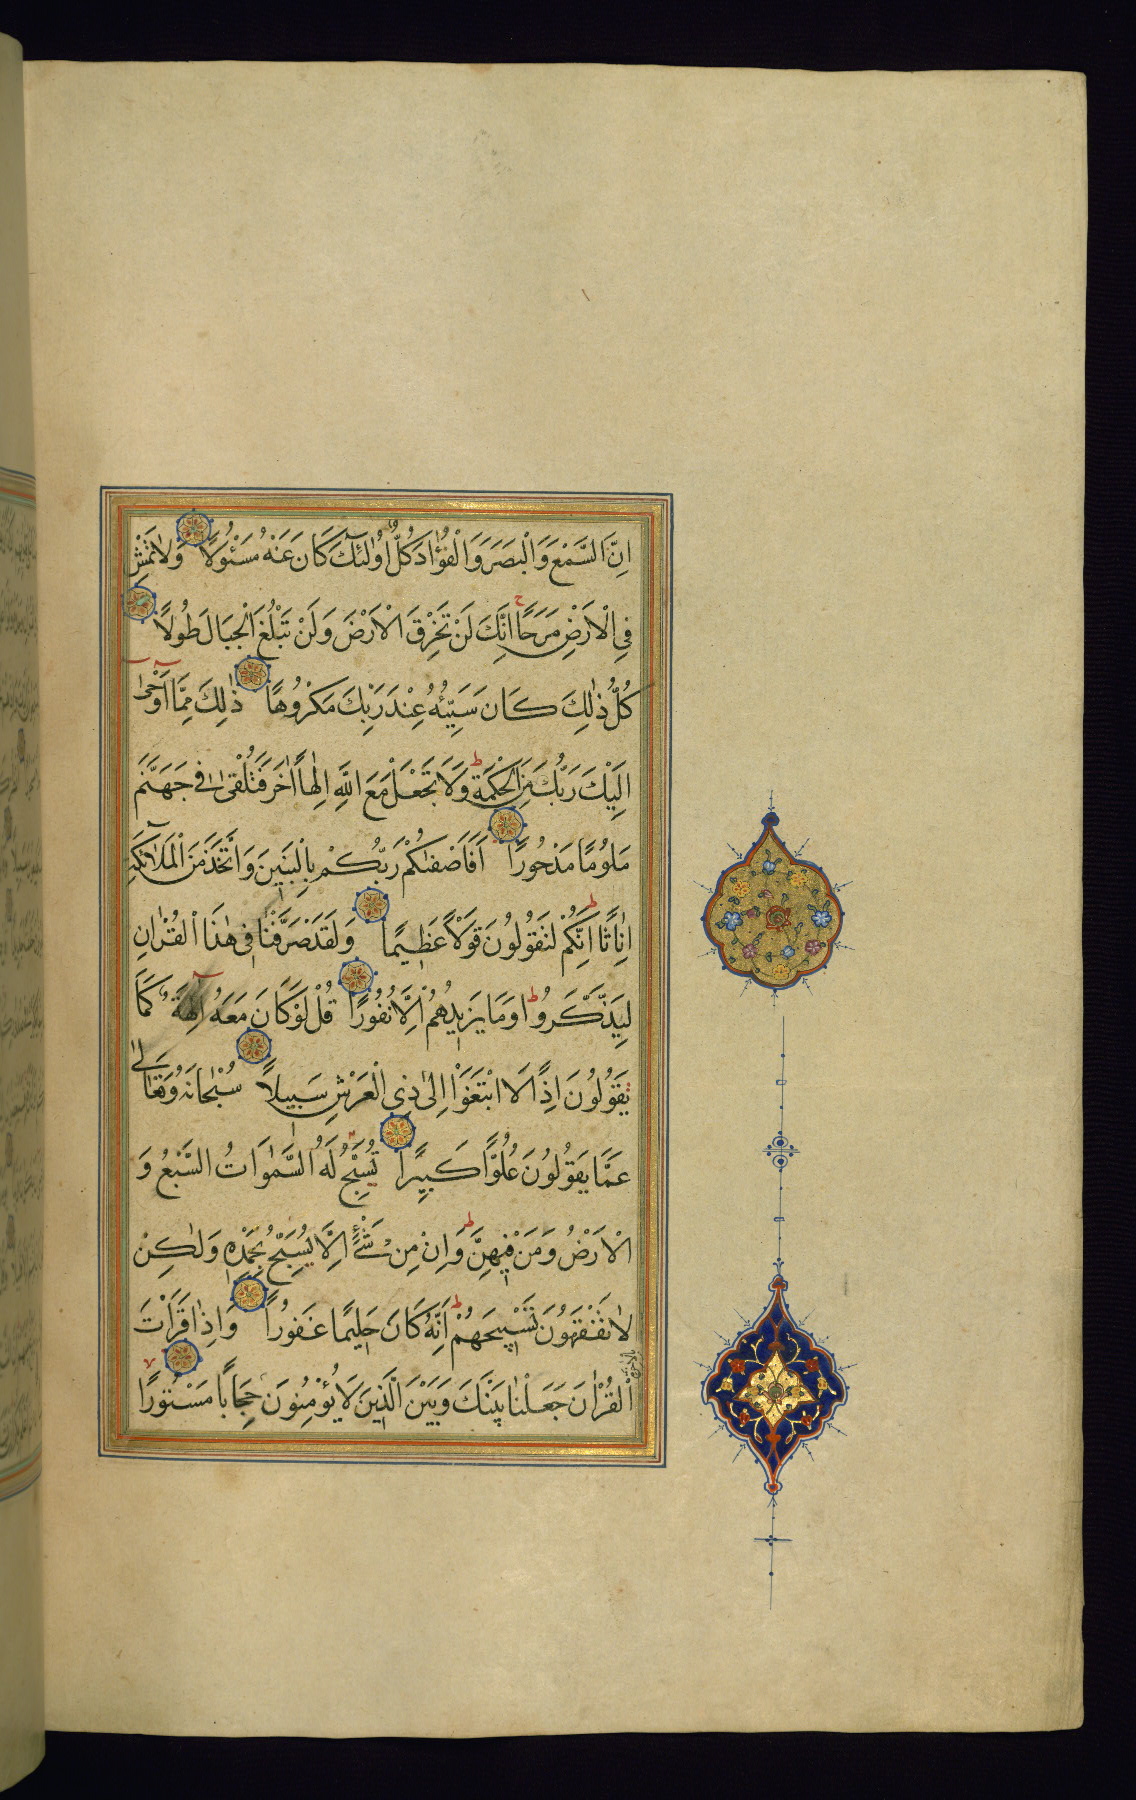 اِنَّ السَّمْعَ وَالْبَصَرَ وَالْفُؤٰادَ كُلُّ اُوٰلئِكَ كَانَ عَنْهُ مَسْئُولًا وَلَا تَمْشِ
فِى الْاَرْضِ مَرَحًا اِنَّكَ لَنْ تَخْرِقَ الْاَرْضَ وَلَنْ تَبْلُغَ الْجِبَالَ طُولًا
كُلُّ ذٰلِكَ كَانَ سَيِّئُهُ عِنْدَ رَبِّكَ مَكْرُوهًا ذٰلِكَ مِمَّا اَوْحٰى
اِلَيْكَ رَبُّكَ مِنَ الْحِكْمَةِ وَلَا تَجْعَلْ مَعَ اللّٰهِ اِلٰهًا اٰخَرَ فَتُلْقٰى فِى جَهَنَّمَ
مَلُومًا مَدْحُورًا اَفَاَصْفٰىكُمْ رَبُّكُمْ بِالْبَنِينَ وَاتَّخَذَ مِنَ الْمَلٰائِكَةِ
اِنَاثًا اِنَّكُمْ لَتَقُولُونَ قَوْلًا عَظِيمًا وَلَقَدْ صَرَّفْنَا فِى هٰذَا الْقُرْاٰنِ
لِيَذَّكَّرُوا وَمَا يَزِيدُهُمْ اِلَّا نُفُورًا قُلْ لَوْ كَانَ مَعَهُ اٰلِهَةٌ كَمَا
يَقُولُونَ اِذًا لَابْتَغَوْا اِلٰى ذِى الْعَرْشِ سَبِيلًا سُبْحَانَهُ وَتَعَالٰى
عَمَّا يَقُولُونَ عُلُوًّا كَبِيرًا تُسَبِّحُ لَهُ السَّمٰوَاتُ السَّبْعُ وَ
الْاَرْضُ وَمَنْ فِيهِنَّ وَاِنْ مِنْ شَىْءٍ اِلَّا يُسَبِّحُ بِحَمْدِهِ وَلٰكِنْ
لَا تَفْقَهُونَ تَسْبِيحَهُمْ اِنَّهُ كَانَ حَلِيمًا غَفُورًا وَاِذَا قَرَأْتَ
الْقُرْاٰنَ جَعَلْنَا بَيْنَكَ وَبَيْنَ الَّذِينَ لَا يُؤْمِنُونَ بِالْاٰخِرَةِ حِجَابًا مَسْتُورًا